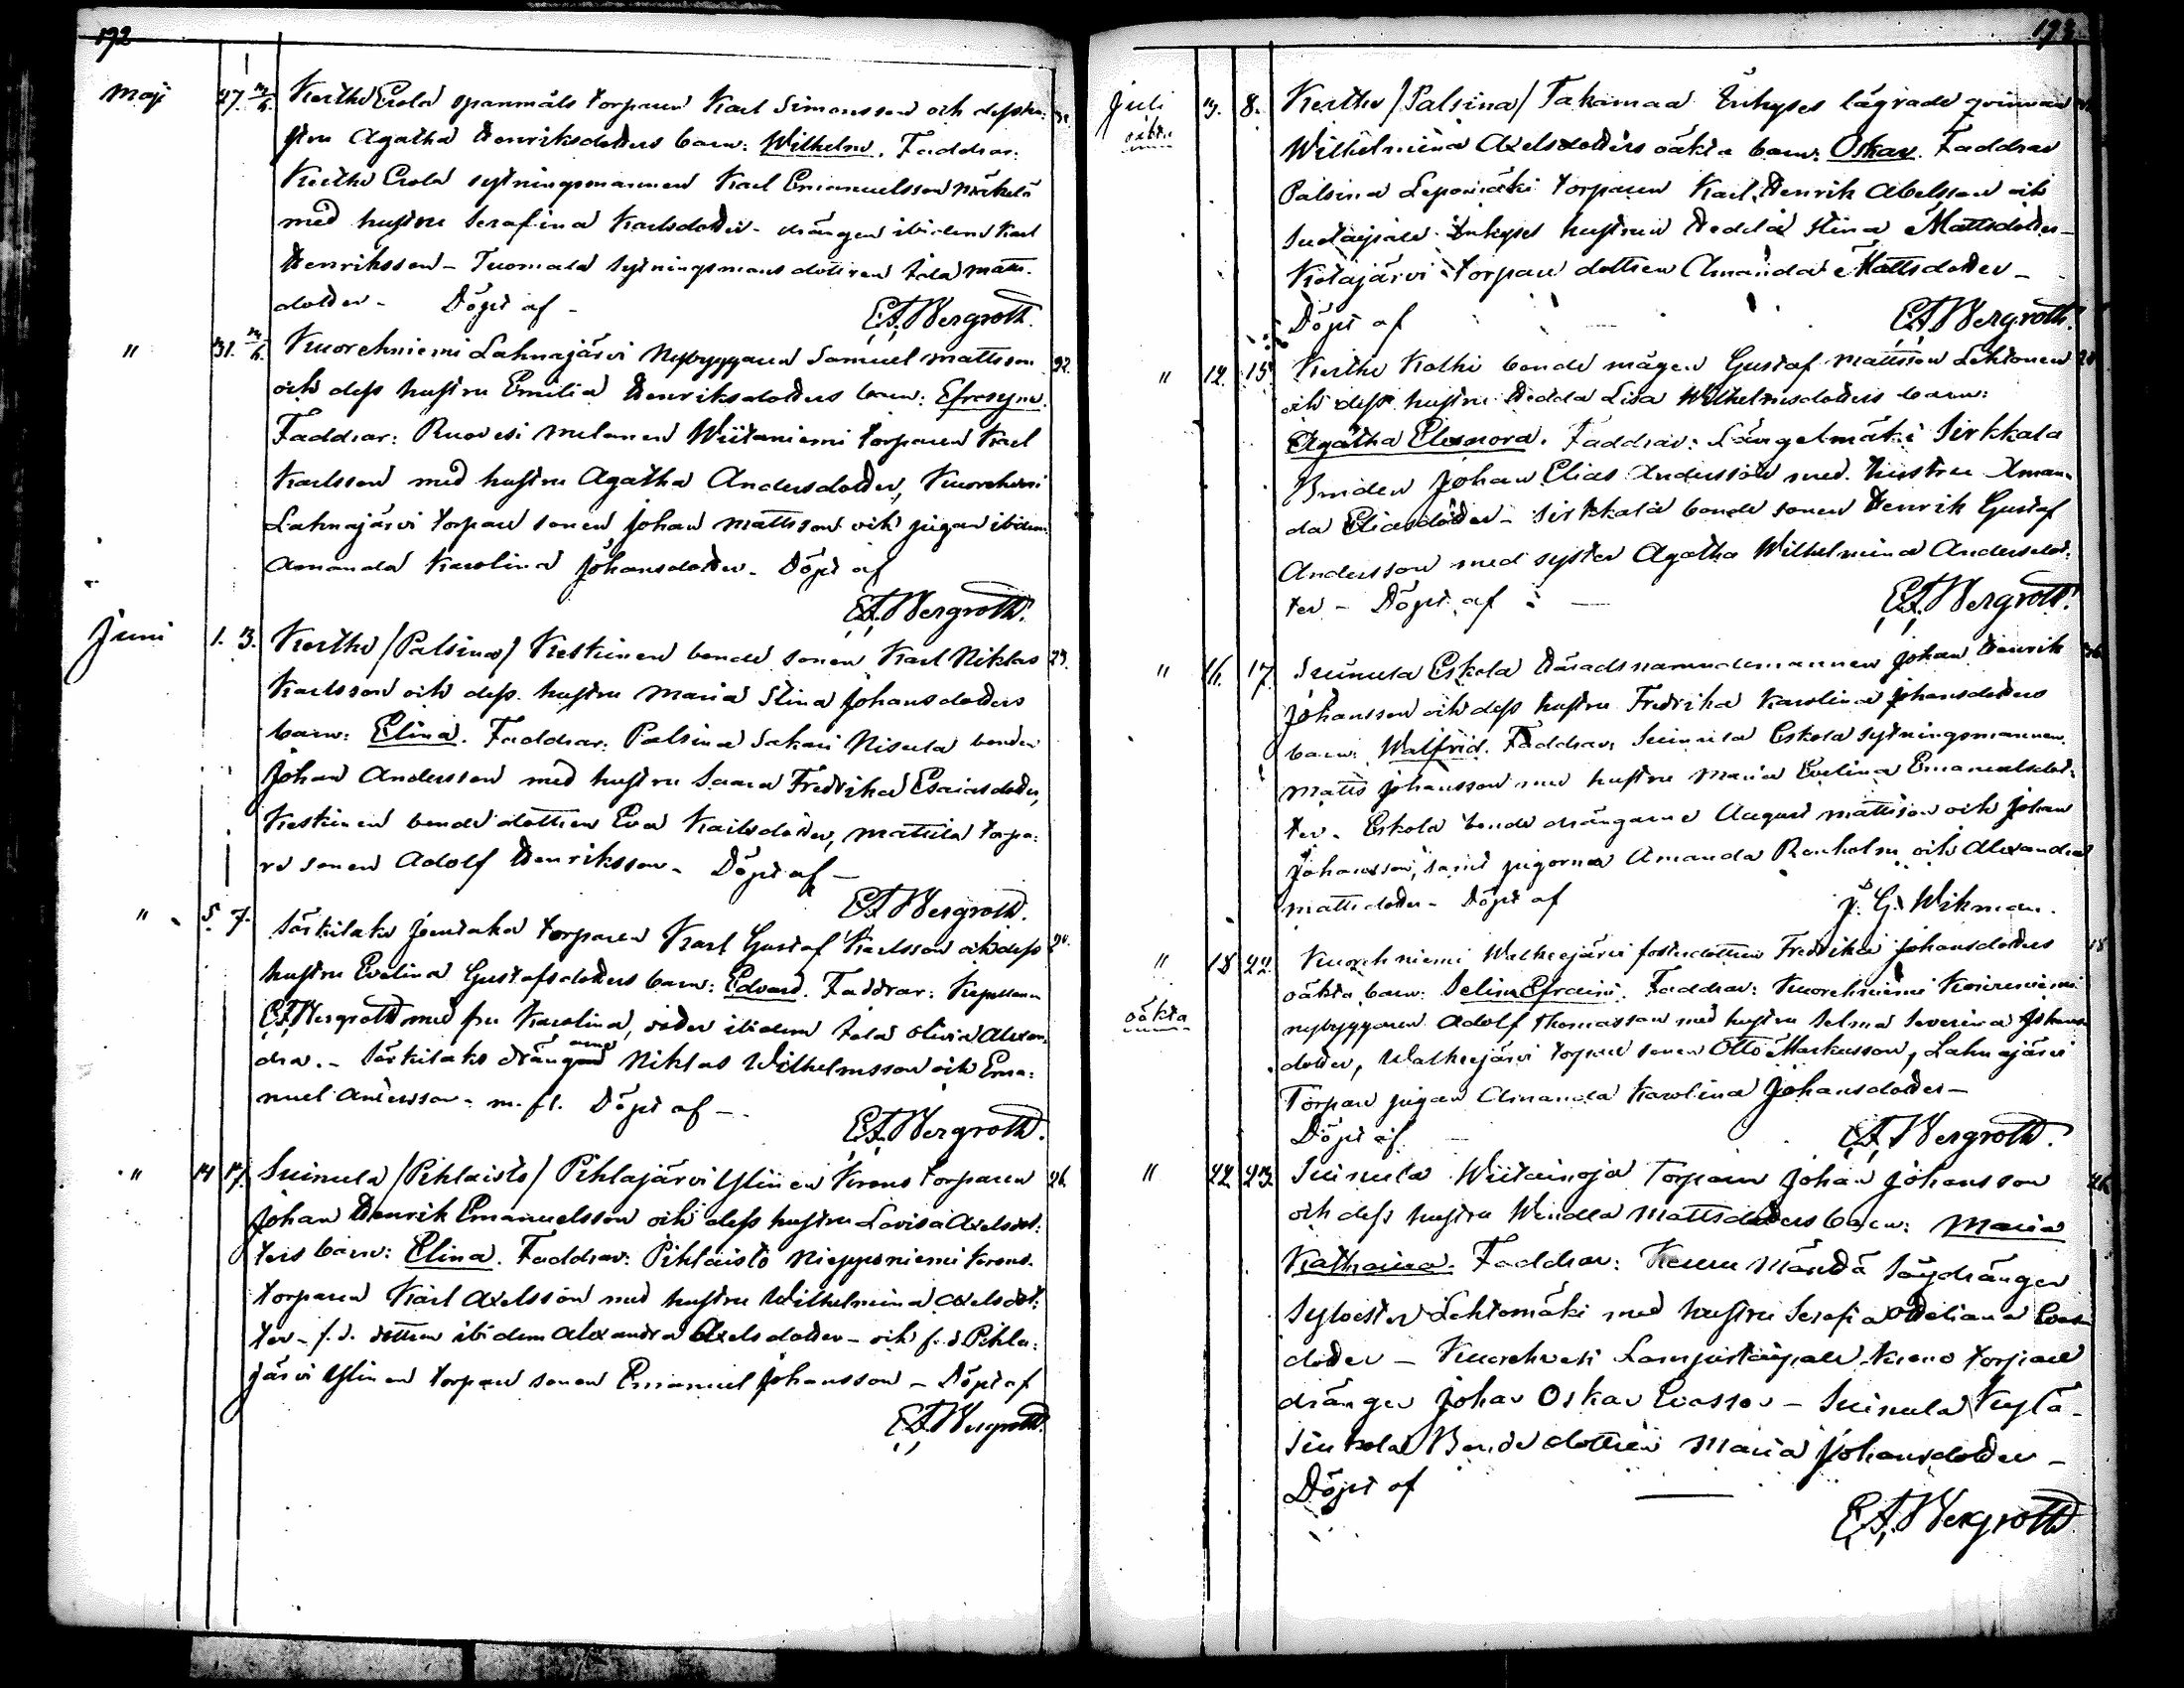 192
Maji 27. 3/6. Kertte Erola spanmåls torparen Karl Simonsson och dess hu-
stru Agatha Henriksdotters barn: Wilhelm. Faddrar:
Kertte Erola sytningsmannen Karl Emanuelsson Mäkelä
med hustru Serafina Karlsdotter - drängen ibidem Karl
Henriksson - Tuomala sytningsmans dottren Ida Matts-
dotter - Döpt af - E.F. Bergroth.
" 31. 3/6. Kuorehniemi Lahnajärvi Nybyggaren Samuel Mattsson 32.
och dess hustru Emilia Henriksdotters barn: Efrosyne.
Faddrar: Ruovesi Wiitaniemi torparen Karl
Karlsson med hustru Agatha Andersdotter, Kuorehniemi
Lahnajärvi torpare sonen Johan Mattsson och pigan ibidem
Amanda Karolina Johansdotter. Döpt af
E.F. Bergroth.
Juni 1. 3. Kertte /Palsina/ Keskinen bonde sonen Karl Niklas 23.
Karlsson och dess hustru Maria Stina Johansdotters
barn: Elina. Faddrar: Palsina Sakari Nisula bonden
Johan Andersson med hustru Saara Fredrika Esaiasdotter,
Keskinen bonde dottren Eva Karlsdotter, Mattila torpa-
re sonen Adolf Henriksson - Döpt af -
E.F. Bergroth.
" 5. 7. Särkilaks Jouttaka torparen Karl Gustaf Karlsson och dess
hustru Evelina Gustafsdotters barn: Edvard. Faddrar: Kapellanen
E.F. Bergroth med fru Karolina, ibidem Ida Olivia Alexan-
dra. - Särkilaks drängarne Niklas Wilhelmsson och Ema-
nuel Andersson - m.fl. Döpt af -
E.F. Bergroth.
" 14 17. Suinula /Pihlaisto/ Pihlajärvi Ylinen Krono torparen 26.
Johan Henrik Emanuelsson och dess hustru Lovisa Axelsdot-
ters barn: Elina. Faddrar: Pihlaisto Nieppiniemi Krono-
torparen Karl Axelsson med hustru Wilhelmina Axelsdot-
ter - f.d. dottren ibidem Alexandra Axelsdotter - och f.d Pihla-
järvi Ylinen torpare sonen Emanuel Johansson - Döpt af
E.F. Bergroth.
193
Juli 3. 8. Kertte /Palsina/ Takamaa Inhyses lägrade qvinnan
oäkta Wilhelmina Axelsdotters oäkta barn: Oskar. Faddrar
Palsina Lepomäki torparen Karl Henrik Abelsson och
Suotaipale Inhyses hustrun Hedda Stina Mattsdotter -
Kotajärvi torpare dottren Amanda Mattsdotter -
Döpt af E.F. Bergroth.
" 12. 15. Kertte Kolhi bonde mågen Gustaf Mattsson Lehtonen 28
och dess hustru Hedda Lisa Wilhelmsdotters barn:
Agatha Eleonora. Faddrar: Längelmäki Sirkkala
Bonden Johan Elias Andersson med hustru Aman-
da Eliasdotter - Sirkkala bonde sonen Henrik Gustaf
Andersson med syster Agatha Wilhelmina Andersdot-
ter - Döpt af E.F. Bergroth.
" 16. 17. Suinula Eskola Häradsnämndemannen Johan Henrik
Johansson och dess hustru Fredrika Karolina Johansdotters
barn: Walfrid. Faddrar: Suinula Eskola sytningsmannen
Matts Johansson med hustru Maria Evelina Emanuelsdot-
ter. Eskola bonde drängarne August Mattsson och Johan
Johansson, samt pigorna Amanda Renholm och Alexandra
Mattsdotter - Döpt af J. G. Wikman.
" 18 22. Kuorehniemi Walkeejärvi fosterdottren Fredrika Johansdotters 18
oäkta oäkta barn: Selim Efraim. Faddrar: Kuorehniemi Koivuniemi
nybyggaren Adolf Thomasson med hustru Selma Severina Johans-
dotter, Walkeejärvi torpare sonen Otto Markusson, Lahnajärvi
Torpare pigan Amanda Karolina Johansdotter -
Döpt af - E.F. Bergroth.
" 22. 23. Suinula Wiitainoja Torparen Johan Johansson 26.
och dess hustru Wendla Mattsdotters barn: Maria
Katharina. Faddrar: Keuru Mändä Sågdrängen
Sylvester Lehtomäki med hustru Serafia Otteliana
dotter - Kuorehvesi Lampistaipale Krono torpare
drängen Johan Oskar Evasson - Suinula Kylä-
Sinkola Bonde dottren Maria Johansdotter -
Döpt af
E.F. Bergroth